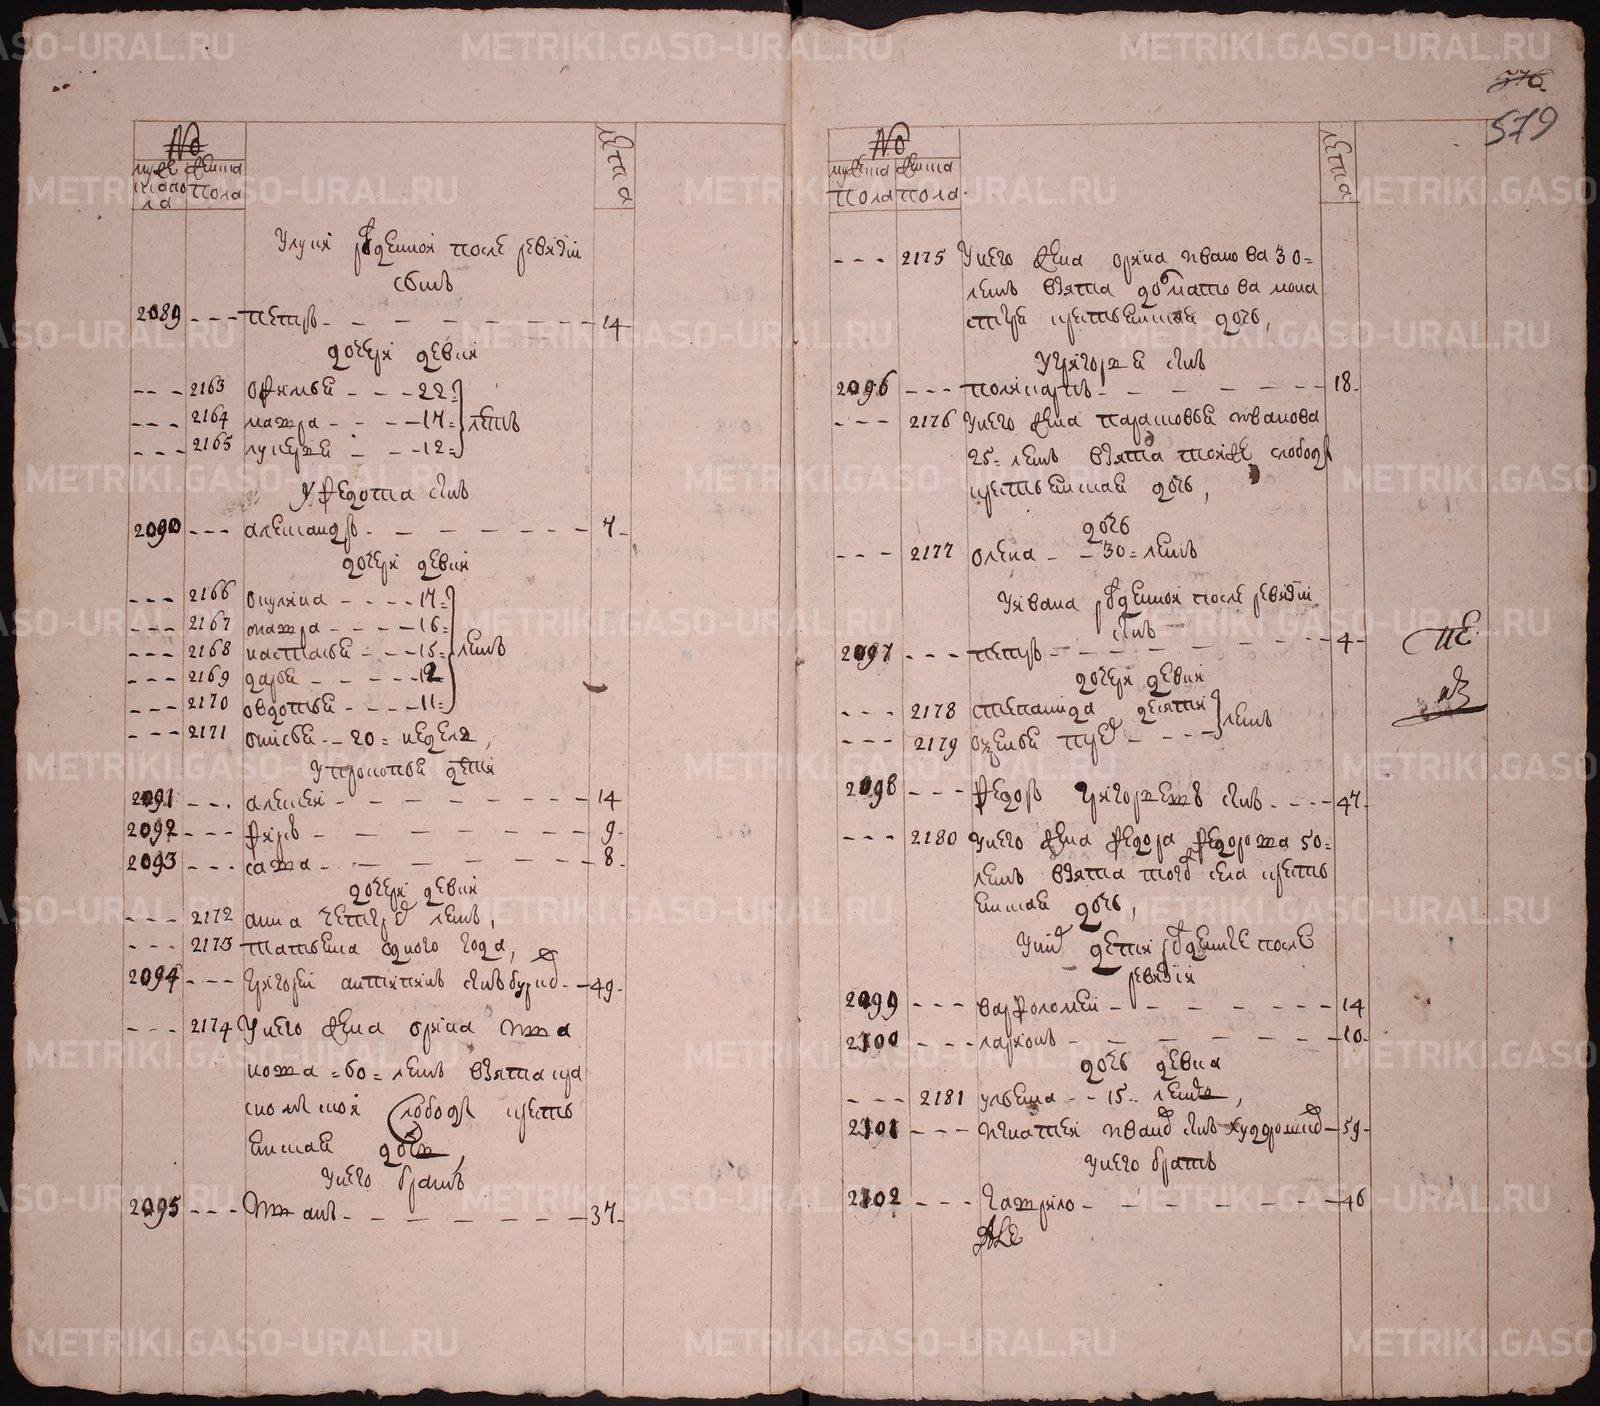 №
мужеска пола
женска пола
лета
Улуки рожденной после ревизiи
сынъ
2089 - - - петръ - - - 14
дочери девки
- - - 2163 - - - 22
- - - 2164 мавра - - - 17
- - - 2165 лукерья - - - 12 летъ
У федота сынъ
2090 - - - александръ - - - 7
дочери девки
- - - 2166 окулина - - - 17
- - - 2167 - - - 16
- - - 2168 настасья - - - 15 летъ
- - - 2169 дарья - - - 12
- - - 2170 овдотья - - - 11
- - - 2171 - - 20 недель,
У прокопья дети
2091 - - - алексей - - - 14
2092 - - - фирсъ - - - 9
2093 - - - сава - - - 8
дочери девки
- - - 2172 анна четырехъ летъ,
- - - 2173 татьяна одного года,
2094 - - - григорей антипинъ сынъ - - 49
- - - 2174 У него жена орина
60 летъ взята
слободы кресть
янская дочь,
У него братъ
2095 - - - иванъ - - - 37
576
579
№
мужеска пола
женска пола
лета
- - - 2175 У него жена орина иванова 30
летъ взята долматова мона
стыря крестьянская дочь,
У григорья сынъ
2096 - - - поликарпъ - - - 18
- - - 2176 У него жена парасковья иванова
25 летъ взята той же слободы
крестьянская дочь,
дочь
- - - 2177 олена - - 30 летъ
У ивана рожденной после ревизiи
сынъ
2097 - - - петръ - - - 4
дочери девки
- - - 2178 степанида десяти
- - - 2179 - - - летъ
2098 - - - федоръ григорьевъ сынъ - - - 47
- - - 2180 У него жена федора федорова 50
летъ взята того села кресть
янская дочь,
У нихъ дети рожденные после
ревизiи
2099 - - - варфоломей - - - 14
2100 - - - ларионъ - - - 10
дочь девка
- - - 2181 ульяна - - 15 летъ,
2101 - - - игнатей ивановъ сынъ - 59
У него братъ
2102 - - - гаврило - - - 46